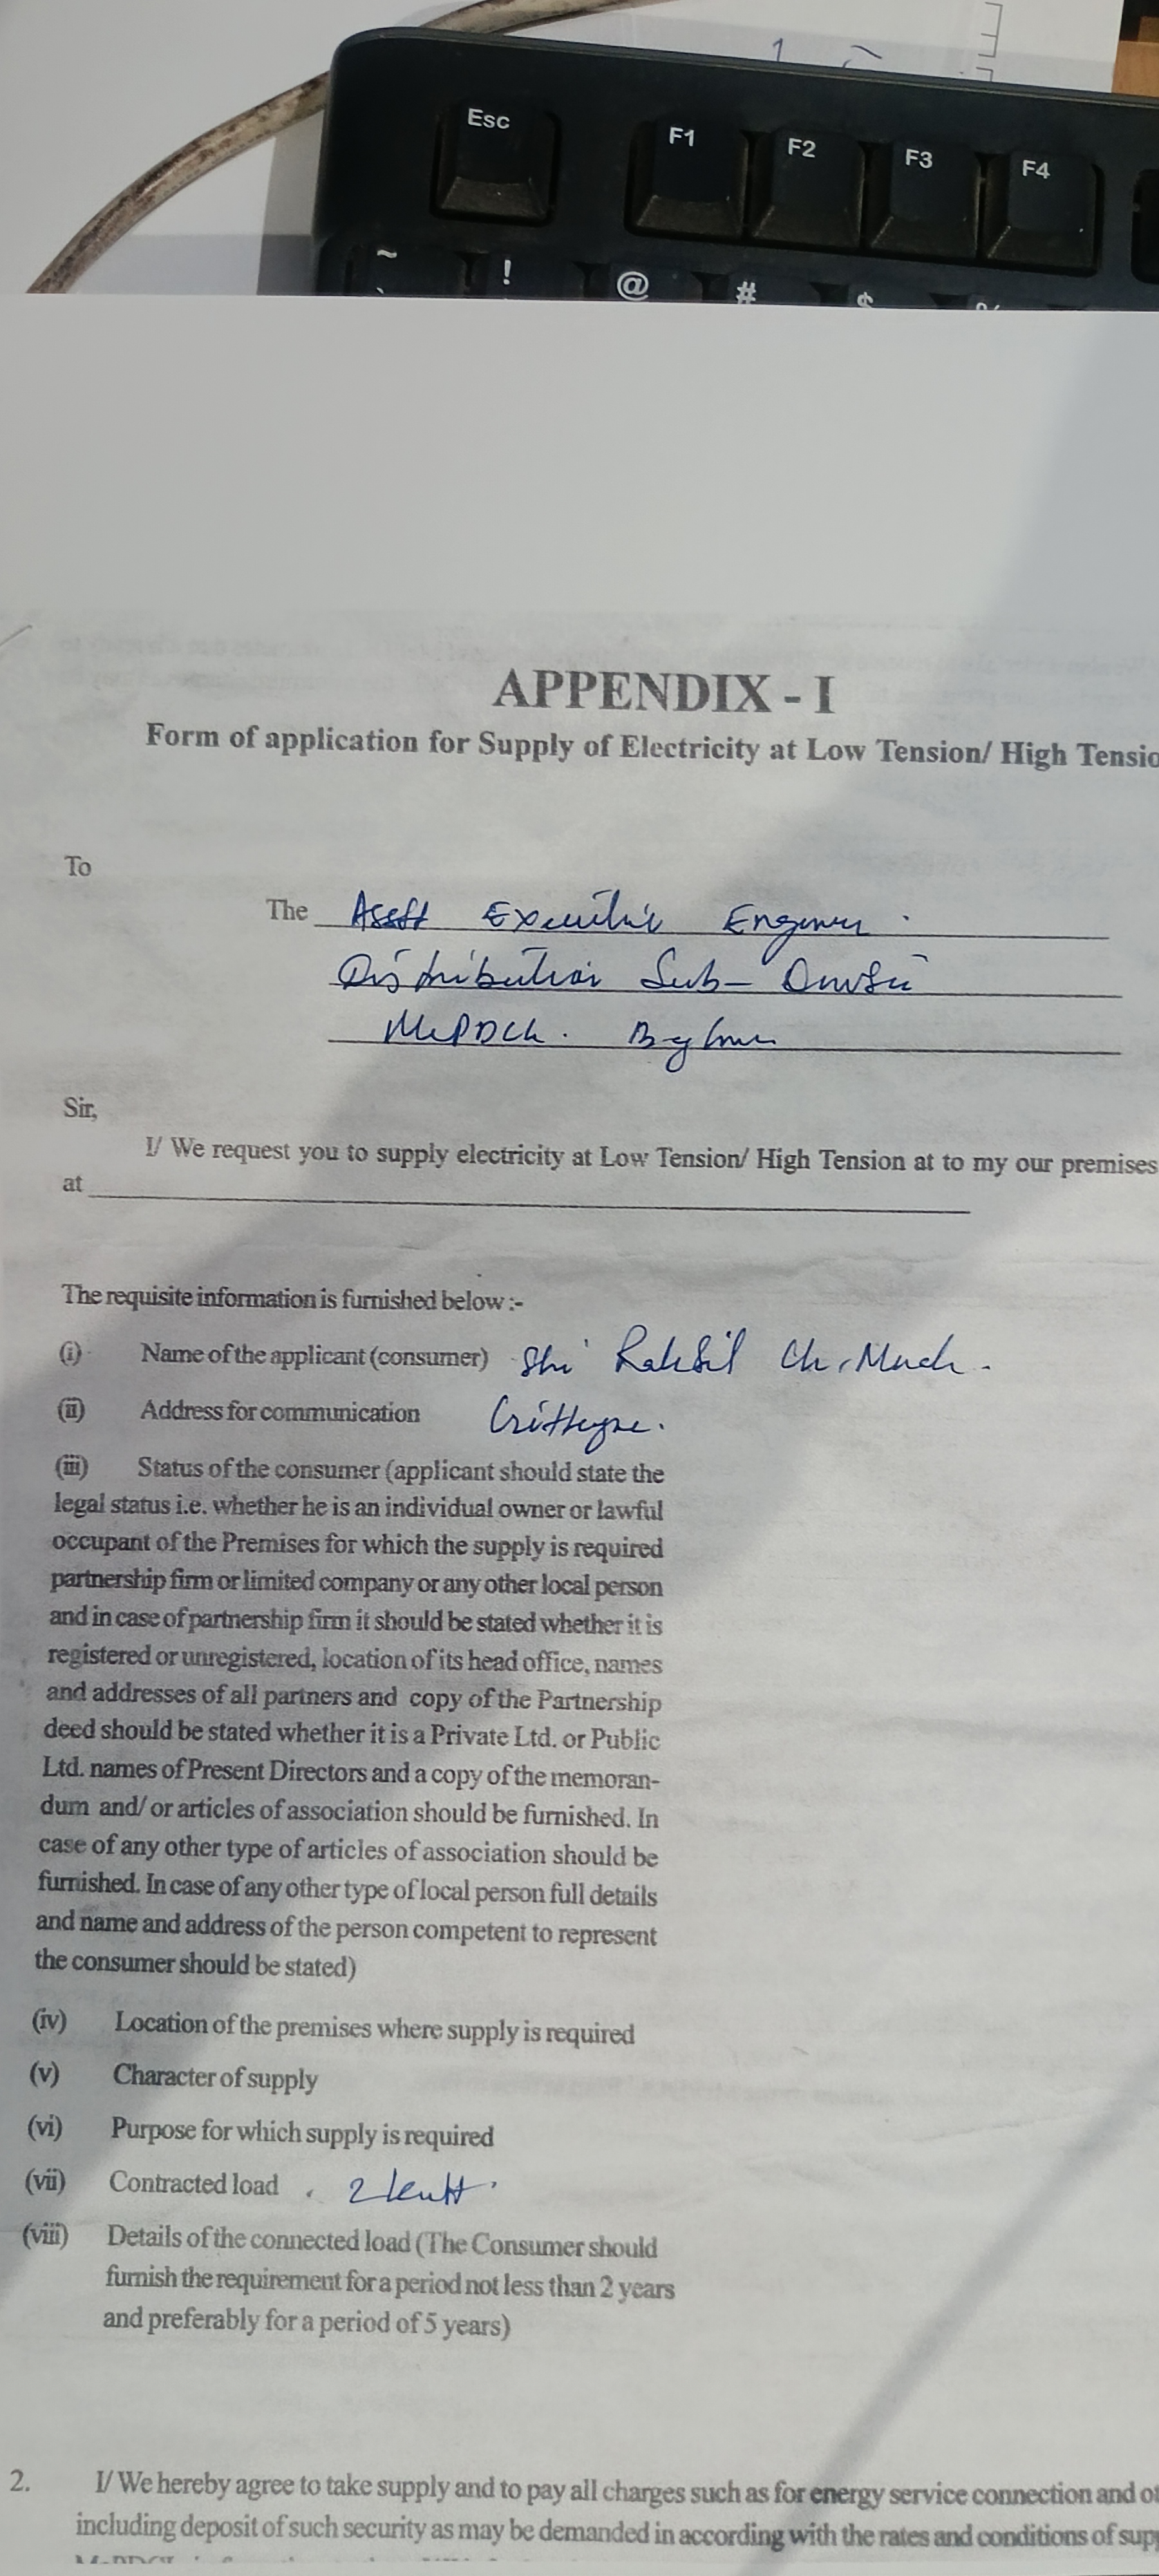 Esc F1 F2 F3 F4
~ ! @ # $ %
`
APPENDIX - I
Form of application for Supply of Electricity at Low Tension/ High Tensio
To
The Asstt Executive Engineer
Distribution Sub-
MePDCL.
Sir,
I/ We request you to supply electricity at Low Tension/ High Tension at to my our premises
at
The requisite information is furnished below :-
(i) Name of the applicant (consumer) Shri Ch.
(ii) Address for communication
(iii) Status of the consumer (applicant should state the
legal status i.e. whether he is an individual owner or lawful
occupant of the Premises for which the supply is required
partnership firm or limited company or any other local person
and in case of partnership firm it should be stated whether it is
registered or unregistered, location of its head office, names
and addresses of all partners and copy of the Partnership
deed should be stated whether it is a Private Ltd. or Public
Ltd. names of Present Directors and a copy of the memoran-
dum and/ or articles of association should be furnished. In
case of any other type of articles of association should be
furnished. In case of any other type of local person full details
and name and address of the person competent to represent
the consumer should be stated)
(iv) Location of the premises where supply is required
(v) Character of supply
(vi) Purpose for which supply is required
(vii) Contracted load 2
(viii) Details of the connected load (The Consumer should
furnish the requirement for a period not less than 2 years
and preferably for a period of 5 years)
2. I/ We hereby agree to take supply and to pay all charges such as for energy service connection and ot
including deposit of such security as may be demanded in according with the rates and conditions of supp